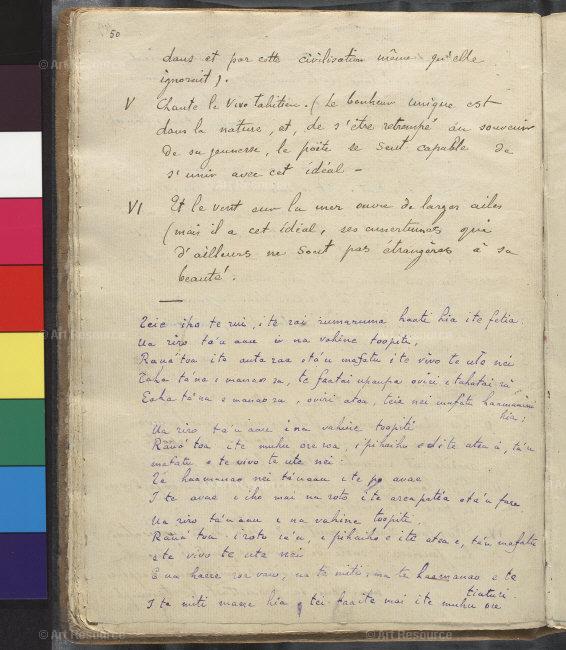 50
dans et par cette civilisation même qu'elle
ignorait).
V Chante le Vivo tahitien. (Le bonheur unique est
dans la nature, et, de s'être retrempé au souvenir
de sa jeunesse, le poète se sent capable de
s'unir avec cet idéal -
VI Et le vent sur la mer ouvre de larges ailes
(mais il a cet idéal, ses amertumes qui
d'ailleurs ne sont pas étrangères à sa
beauté.
Teie iho te rui, i te rai rumaruma haati hia i te fetia
Ua riro ta'u aau i na vahine toopiti,
Rauá toa ite auta raa o ta'u mafatu i te vivo te uto nei
Eaha ta'na e manao ra, te faatai upaupa oviri e tahatai ra
Eaha ta'na e manao ra, oviri atoa, teie nei mafatu haamanini
hia;
Ua riro ta'u aau i na vahine toopiti
Rauá toa, ite muhu ore roa, i pihaiho e di te atea á, ta'u
mafatu e te vivo te ute nei.
Té haamanao nei ta'u aau ite po avae
I te avae e iho mai na roto i te area patéa o ta'u fare
Ua riro ta'u aau i na vahine toopiti
Rauá toa i roto ia'u, i pihaiho e ite atea e, ta'u mafatu
e te vivo te ute nei
E ua haere roa vau, na te miti, ma te haamanao e te
tiaturi
I te miti maere hia, tei faaite mai ite muhu ore
Art Resource